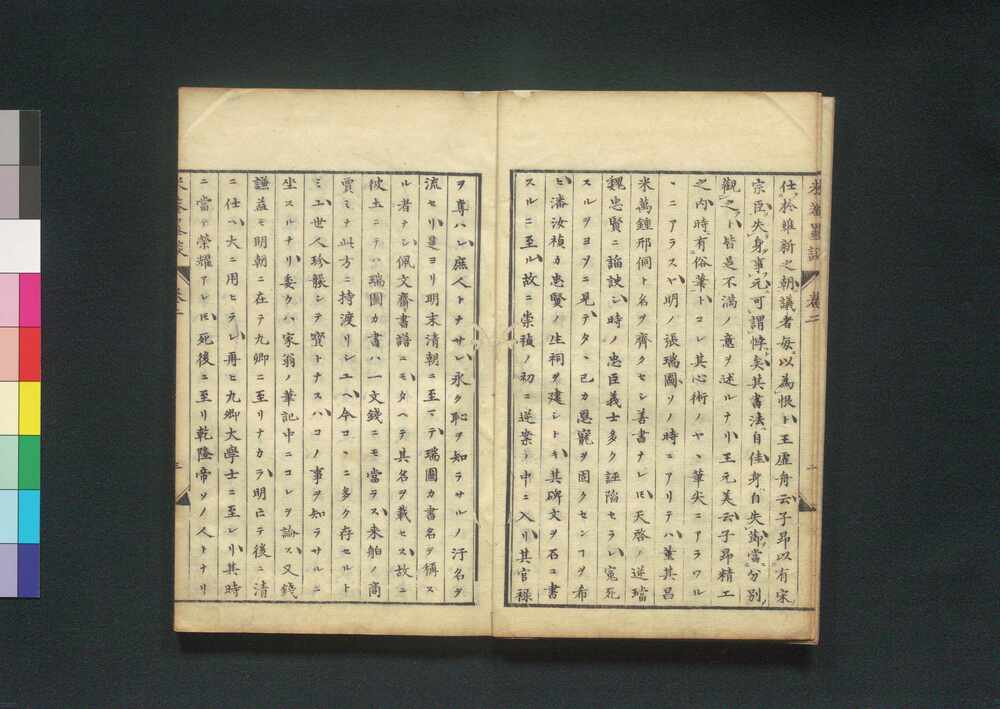 米菴墨談 卷二
仕於維新之朝議者每以為恨ト王虛舟云子昂以有宋
宗臣失身事元可謂悖矣其書法自佳身自失節當分別
觀之ト皆是不滿ノ意ヲ述ルナリ王元美云子昂精工
之內時有俗筆トコレ其心術ノヤヽ筆尖ニアラワル
ヽニアラスヤ明ノ張瑞圖ソノ時ニアリテハ董其昌
米萬鍾邢侗ト名ヲ齊クセシ善書ナレ𪜈天啓ノ逆璫
魏忠賢ニ謟諛シ時ノ忠臣義士多ク誣陷セラレ寃死
スルヲヨソニ見テタヽ己カ恩寵ヲ固クセンコヲ希
ヒ潘汝禎カ忠賢ノ生祠ヲ建シトキ其碑文ヲ石ニ書
スルニ至ル故ニ崇禎ノ初ニ逆案ノ中ニ入リ其官祿
ヲ辱ハレ庶人トナサレ永ク恥ヲ知ラサルノ汙名ヲ
流セリ是ヨリ明末清朝ニ至マテ瑞圖カ書名ヲ稱ス
ル者ナシ佩文齋書譜ニモタヘテ其名ヲ載セス故ニ
彼土ニテハ瑞圖カ書ハ一文錢ニモ當ラス来舶ノ商
賈ミナ此方ニ持渡リシユヘ今コヽニ多ク存セルト
ミユ世人珍襲シテ寳トナスハコノ事ヲ知ラサルニ
坐スルナリ委クハ家翁ノ筆記中ニコレヲ論ス又錢
謙益モ明朝ニ在テ九卿ニ至リナカラ明亡テ後ニ清
ニ仕ヘ大ニ用ヒラレ再ヒ九卿大學士ニ至レリ其時
ニ當テ榮耀アレ𪜈死後ニ至リ乾隆帝ソノ人トナリ